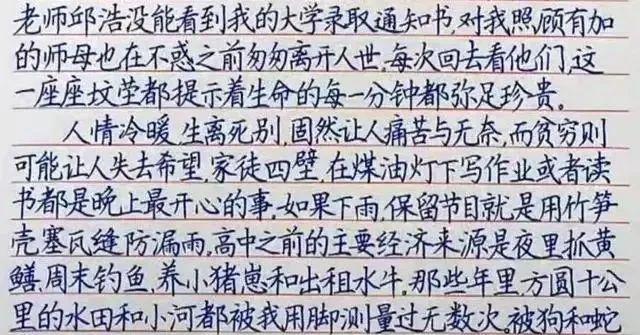 老师邱浩没能看到我的大学录取通知书,对我照顾有加
的师母也在不惑之前匆匆离开人世,每次回去看他们,这
一座座坟茔都提示着生命的每一分钟都弥足珍贵。
人情冷暖,生离死别,固然让人痛苦与无奈,而贫穷则
可能让人失去希望,家徒四壁,在煤油灯下写作业或者读
书都是晚上最开心的事,如果下雨,保留节目就是用竹笋
壳塞瓦缝防漏雨,高中之前的主要经济来源是夜里抓黄
鳝,周末钓鱼,养小猪崽和出租水牛,那些年里方圆十公
里的水田和小河都被我用脚测量过无数次,被狗和蛇